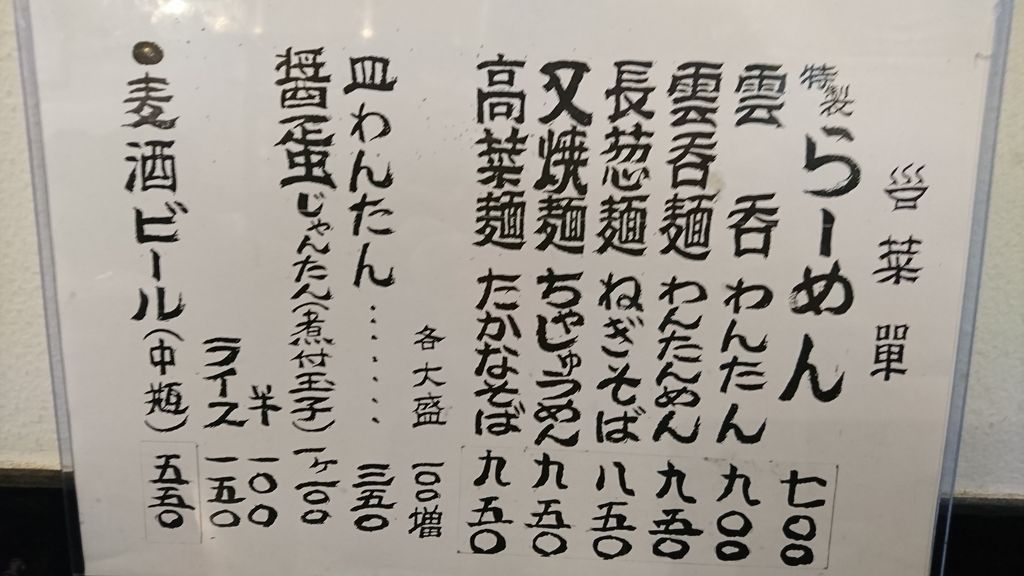 營菜單
特製らーめん 七〇〇
雲呑 わんたん 九〇〇
雲呑麺 わんたんめん 九五〇
長葱麺 ねぎそば 八五〇
叉焼麺 ちゃしゅうめん 九五〇
高菜麺 たかなそば 九五〇
各大盛 一〇〇増
皿わんたん‥‥‥ 三五〇
醤蛋じゃんたん(煮付玉子) 一ケ一〇〇
半 一〇〇
ライス 一五〇
●麦酒ビール(中瓶) 五五〇